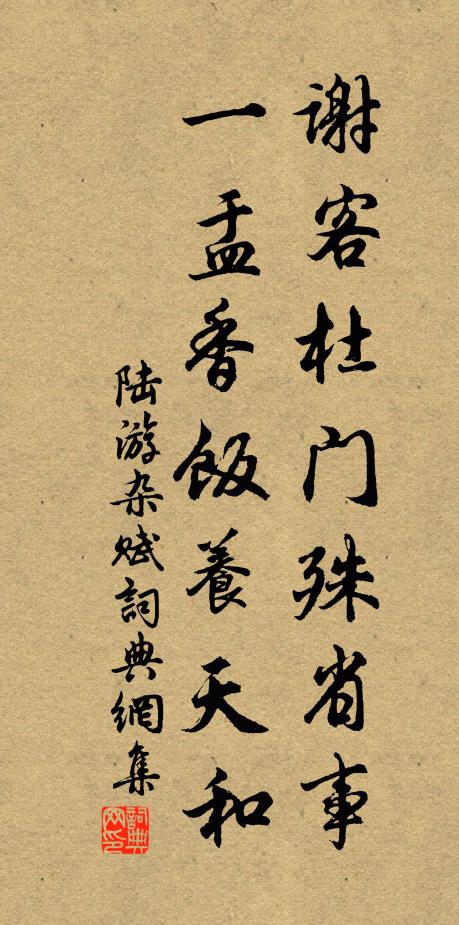 谢客杜门殊省事
一盂香飯養天和
陆游杂赋詞典網集
詞典
网印